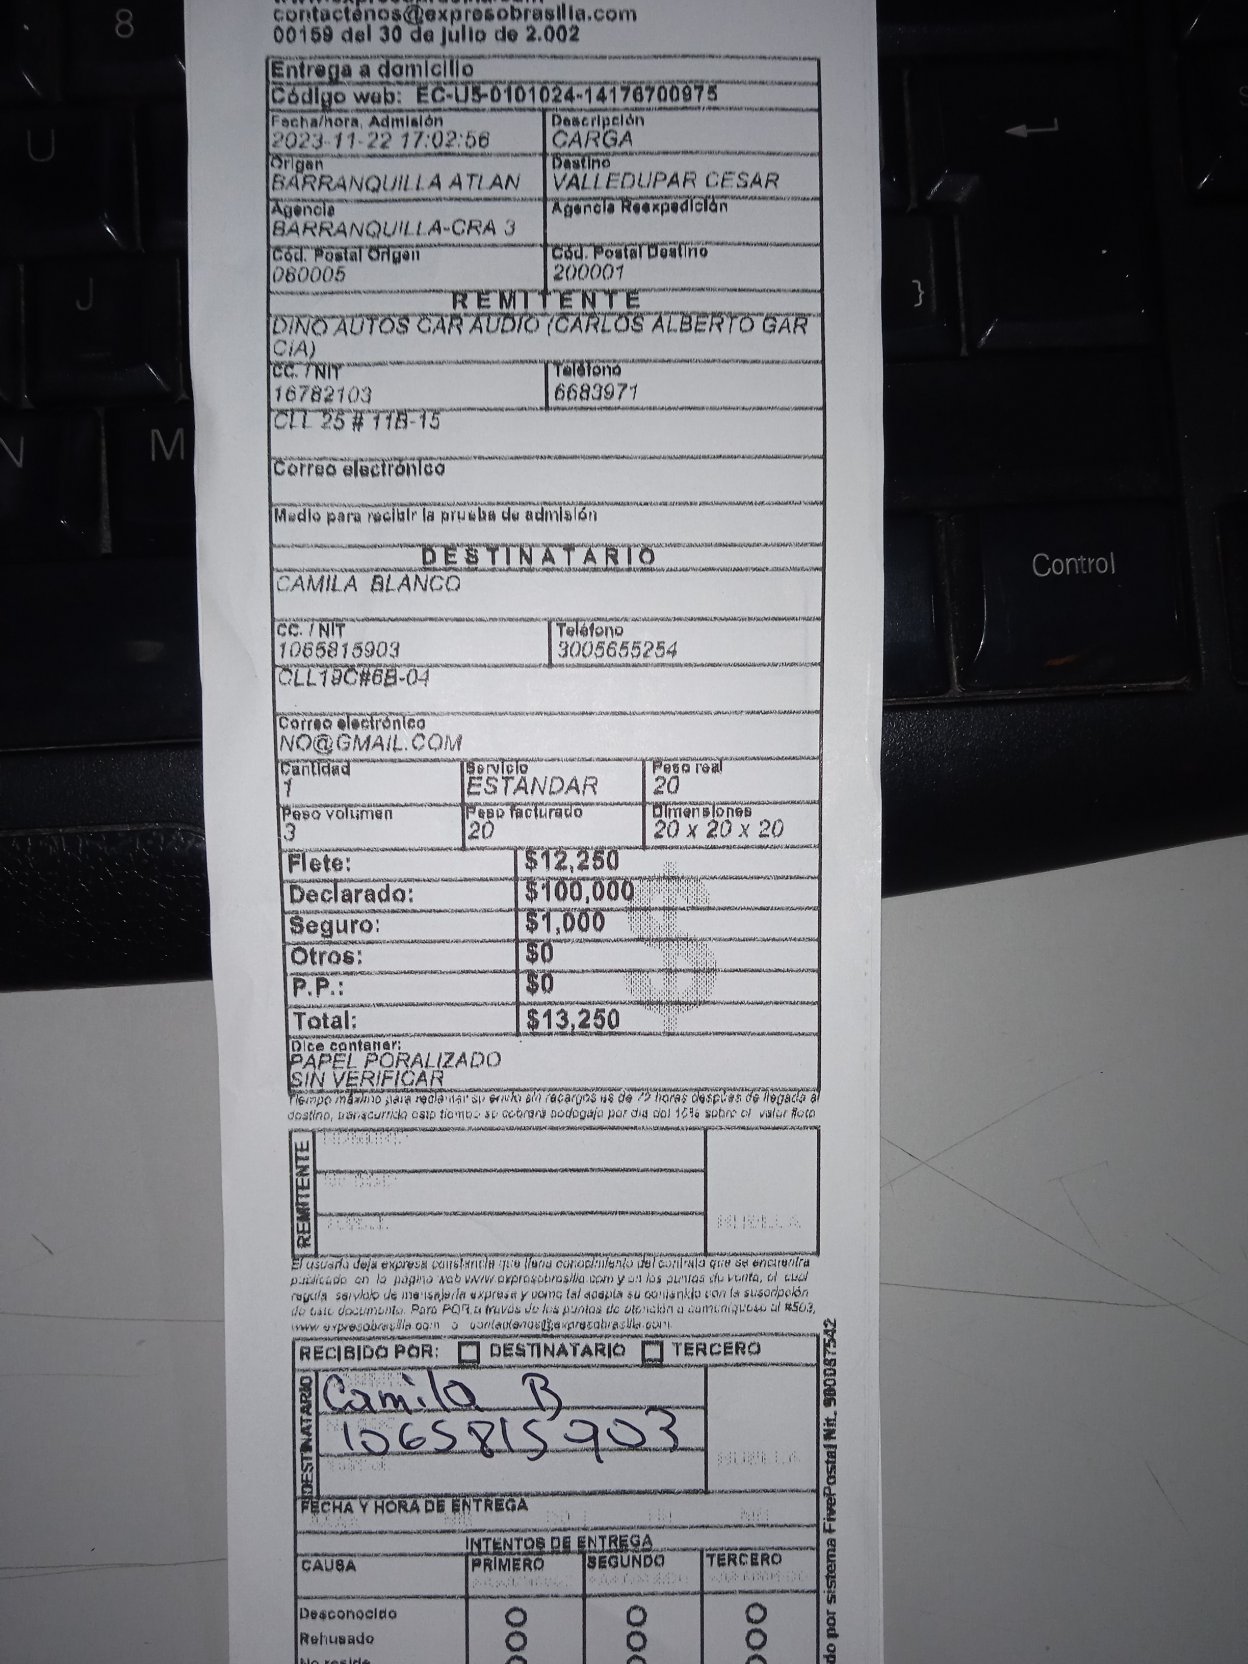 contactenos@expresobrasilia.com
00159 del 30 de julio de 2.002
Entrega a domicilio
Código web: EC-U5-0101024-14176700975
Fecha/hora, Admisión
2023-11-22 17:02:56
Descripción
CARGA
Origen
BARRANQUILLA ATLAN
Destino
VALLEDUPAR CESAR
Agencia
BARRANQUILLA-CRA 3
Agencia Reexpedición
Cód. Postal Origen
080005
Cód. Postal Destino
200001
REMITENTE
DINO AUTOS CAR AUDIO (CARLOS ALBERTO GAR
CIA)
CC. / NIT
16782103
Teléfono
6683971
CLL 25 # 11B-15
Correo electrónico
Medio para recibir la prueba de admisión
DESTINATARIO
CAMILA BLANCO
CC. / NIT
1065815903
Teléfono
3005655254
CLL19C#6B-04
Correo electrónico
NO@GMAIL.COM
Cantidad
1
Servicio
ESTANDAR
Peso real
20
Peso volumen
3
Peso facturado
20
Dimensiones
20 x 20 x 20
Flete: $12,250
Declarado: $100,000
Seguro: $1,000
Otros: $0
P.P.: $0
Total: $13,250
Dice contener:
PAPEL PORALIZADO
SIN VERIFICAR
Tiempo máximo para reclamar su envío sin recargos es de 72 horas después de llegada al
destino, transcurrido este tiempo se cobrara bodegaje por día del 15% sobre el valor flete
REMITENTE
HUELLA
El usuario deja expresa constancia que tiene conocimiento del contrato que se encuentra
publicado en la página web www.expresobrasilia.com y en los puntos de venta, el cual
regula servicio de mensajería expresa y como tal acepta su contenido con la suscripción
de este documento. Para PQR a través de los puntos de atención o comuníquese al #503,
www.expresobrasilia.com o contactenos@expresobrasilia.com.
RECIBIDO POR: DESTINATARIO TERCERO
DESTINATARIO
Camila B
1065815903
HUELLA
FECHA Y HORA DE ENTREGA
INTENTOS DE ENTREGA
CAUSA PRIMERO SEGUNDO TERCERO
Desconocido
Rehusado
No reside
do por sistema FivePostal Nit. 900087542
8
U
J
N
M
}
Control